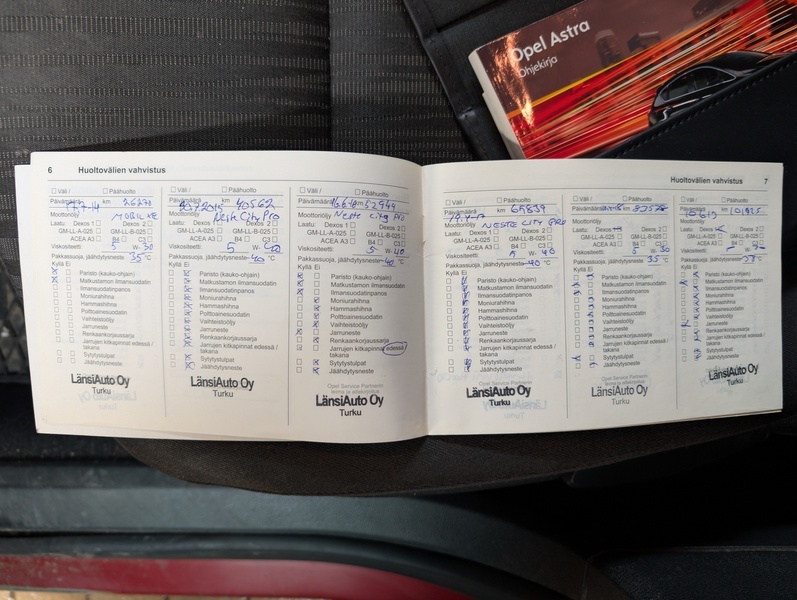 Opel Astra
Ohjekirja
6 Huoltovälien vahvistus
Väli / Päähuolto
Päivämäärä 17.4-14 km 26270
Moottoriöljy
Laatu: Dexos 1 Dexos 2
GM-LL-A-025 GM-LL-B-025
ACEA A3 B4 C3
Viskositeetti: 5 W- 30
Pakkassuoja, jäähdytysneste 35 °C
Kyllä Ei
Paristo (kauko-ohjain)
Matkustamon ilmansuodatin
Ilmansuodatinpanos
Moniurahihna
Hammashihna
Polttoainesuodatin
Vaihteistoöljy
Jarruneste
Renkaankorjaussarja
Jarrujen kitkapinnat edessä /
takana
Sytytystulpat
Jäähdytysneste
LänsiAuto Oy
Turku
Väli / Päähuolto
km 40562
Moottoriöljy Neste City Pro
Laatu: Dexos 1 Dexos 2
GM-LL-A-025 GM-LL-B-025
ACEA A3 B4 C3
Viskositeetti: 5 W- 40
Pakkassuoja, jäähdytysneste -40 °C
Kyllä Ei
Paristo (kauko-ohjain)
Matkustamon ilmansuodatin
Ilmansuodatinpanos
Moniurahihna
Hammashihna
Polttoainesuodatin
Vaihteistoöljy
Jarruneste
Renkaankorjaussarja
Jarrujen kitkapinnat edessä /
takana
Sytytystulpat
Jäähdytysneste
LänsiAuto Oy
Turku
Väli / Päähuolto
Päivämäärä km 52944
Moottoriöljy Neste city pro
Laatu: Dexos 1 Dexos 2
GM-LL-A-025 GM-LL-B-025
ACEA A3 B4 C3
Viskositeetti: 5 W- 40
Pakkassuoja, jäähdytysneste -40 °C
Kyllä Ei
Paristo (kauko-ohjain)
Matkustamon ilmansuodatin
Ilmansuodatinpanos
Moniurahihna
Hammashihna
Polttoainesuodatin
Vaihteistoöljy
Jarruneste
Renkaankorjaussarja
Jarrujen kitkapinnat edessä /
takana
Sytytystulpat
Jäähdytysneste
LänsiAuto Oy
Turku
Huoltovälien vahvistus 7
Väli / Päähuolto
Päivämäärä km 65839
Moottoriöljy NESTE CITY PRO
Laatu: Dexos 1 Dexos 2
GM-LL-A-025 GM-LL-B-025
ACEA A3 B4 C3
Viskositeetti: 5 W- 40
Pakkassuoja, jäähdytysneste -40 °C
Kyllä Ei
Paristo (kauko-ohjain)
Matkustamon ilmansuodatin
Ilmansuodatinpanos
Moniurahihna
Hammashihna
Polttoainesuodatin
Vaihteistoöljy
Jarruneste
Renkaankorjaussarja
Jarrujen kitkapinnat edessä /
takana
Sytytystulpat
Jäähdytysneste
Opel Service Partnerin
LänsiAuto Oy
Turku
Väli / Päähuolto
km
Moottoriöljy
Laatu: Dexos Dexos 2
GM-LL-A-025 GM-LL-B-025
ACEA A3 B4 C3
Viskositeetti: 5 W- 30
Pakkassuoja, jäähdytysneste 35 °C
Kyllä Ei
Paristo (kauko-ohjain)
Matkustamon ilmansuodatin
Ilmansuodatinpanos
Moniurahihna
Hammashihna
Polttoainesuodatin
Vaihteistoöljy
Jarruneste
Renkaankorjaussarja
Jarrujen kitkapinnat edessä /
takana
Sytytystulpat
Jäähdytysneste
LänsiAuto Oy
Turku
Väli / Päähuolto
Päivämäärä km 101925
Moottoriöljy
Laatu: Dexos Dexos 2
GM-LL-A-025 GM-LL-B-025
ACEA A3 B4 C3
Viskositeetti: W-
Pakkassuoja, jäähdytysneste °C
Kyllä Ei
Paristo (kauko-ohjain)
Matkustamon ilmansuodatin
Ilmansuodatinpanos
Moniurahihna
Hammashihna
Polttoainesuodatin
Vaihteistoöljy
Jarruneste
Renkaankorjaussarja
Jarrujen kitkapinnat edessä /
takana
Sytytystulpat
Jäähdytysneste
LänsiAuto Oy
Turku